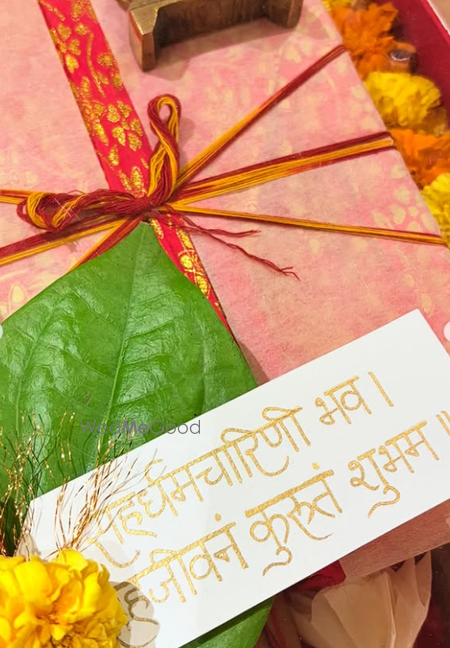 सहधर्मचारिणी भव ।
सहजीवनं कुरुतं शुभम ॥
WedMeGood